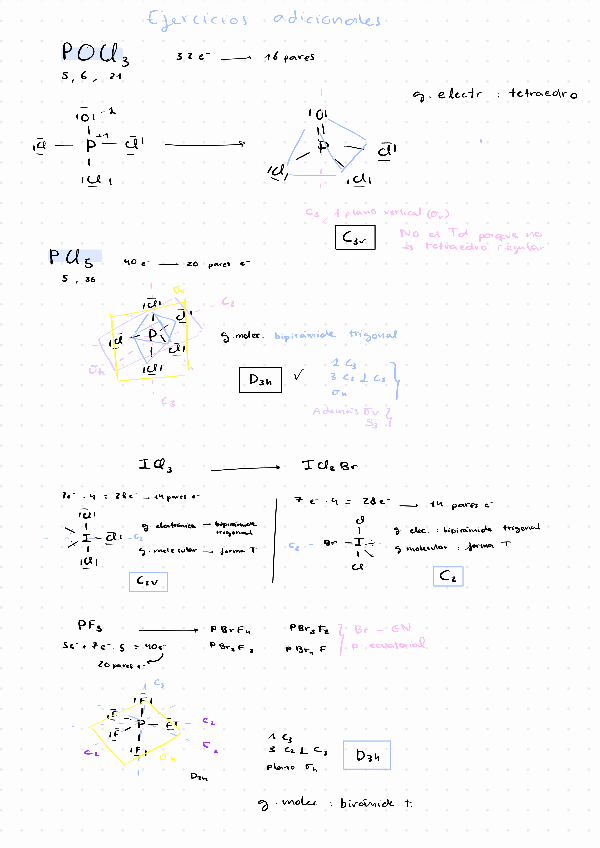 Ejercicios adicionales
POCl3 32 e- → 16 pares
5, 6, 21
g. electr : tetraedro
|O| -1
|Cl — P +1 — Cl|
|Cl|
|O|
P
|Cl| |Cl| Cl|
C3, 1 plano vertical (σv)
C3v
NO es Td porque no
es tetraedro regular
PCl5 40 e- — 20 pares e-
5, 35
σv
C2
|Cl| Cl|
|Cl P Cl|
|Cl|
σh
C3
g. molec. bipirámide trigonal
D3h ✓
1 C3
3 C2 ⊥ C3
σh
Además σv
S3
ICl3 → ICl2Br
7e- · 4 = 28 e- → 14 pares e-
|Cl|
I — Cl| - C2
|Cl|
g. electrónica — bipirámide trigonal
g. molecular → forma T
C2v
7 e- · 4 = 28e- → 14 pares e-
Cl
C2 - - Br — I
Cl
g. elec. : bipirámide trigonal
g molecular : forma T
C2
PF5 → PBrF4 PBr3F2 } Br — EN
5e- + 7e- · 5 = 40e- PBr2F3 PBr4F p. ecuatorial
20 pares e-
1 C3
|F|
|F P F| C2
|F |F| σv
C2 σh
D3h
1 C3
3 C2 ⊥ C3
plano σh
D3h
g. molec : birámide t.